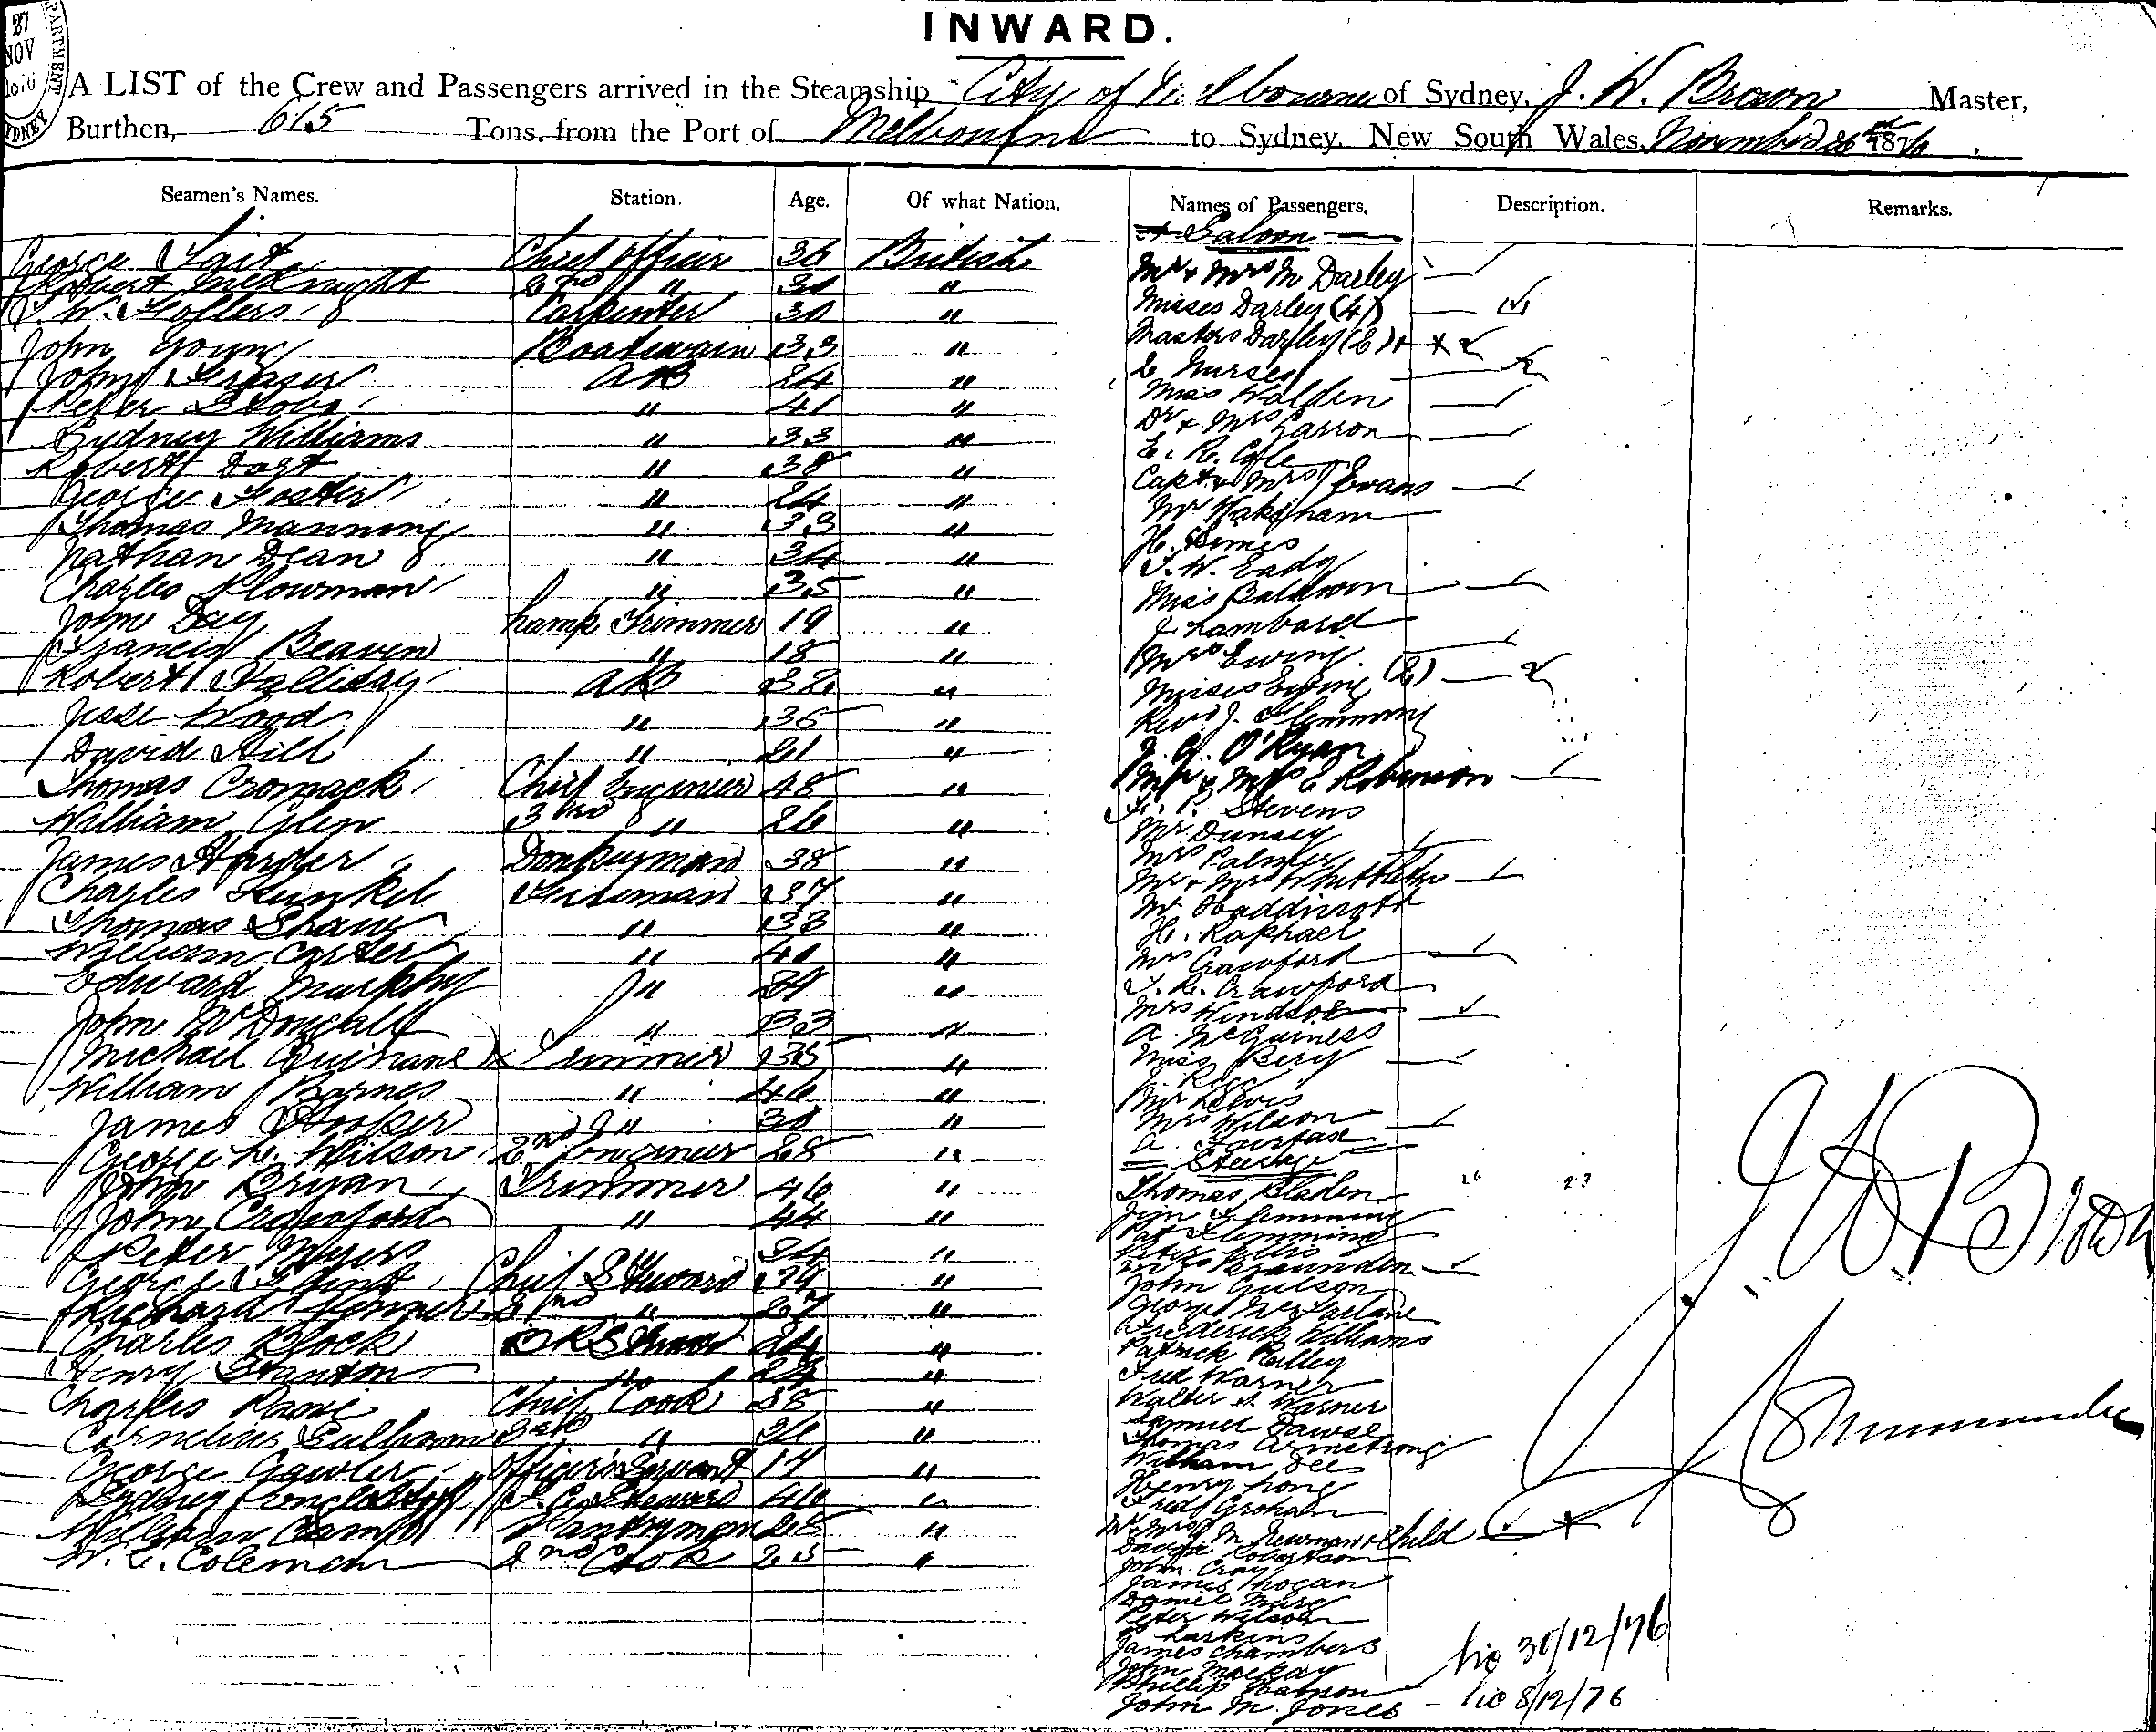 27
NOV
PARTMENT
SYDNEY
INWARD.
A LIST of the Crew and Passengers arrived in the Steamship City of Melbourne of Sydney, J. W. Brown Master,
Burthen, 615 Tons from the Port of Melbourne to Sydney, New South Wales, November 26th 1876.
Seamen's Names. Station. Age. Of what Nation.
George Chief Officer 36 British
Robert McKnight 2nd " "
J. W. Carpenter 30 "
John Young Boatswain 33 "
John Fraser AB 24 "
Peter " 41 "
Sydney Williams " 33 "
Robert Dast " 38 "
George Foster " 24 "
Thomas Manning " 33 "
Nathan Dean " 34 "
Charles Plowman " 35 "
John Day Lamp Trimmer 19 "
Francis Beaven " 18 "
Robert Halliday AB 32 "
Jesse Wood " 35 "
David Hill " 21 "
Thomas Cromack Chief Engineer 48 "
William Glen 3rd " 26 "
James Donkeyman 38 "
Charles Kunkel Fireman 37 "
Thomas Shaw " 33 "
William Carter " "
Edward Murphy " "
John McDougall " 33 "
Michael Quinane Trimmer 35 "
William Barnes " 46 "
James Hooper " "
George L. Wilson 2nd Engineer 28 "
John Bryan Trimmer 46 "
John Crawford " 44 "
Peter Myers 34 "
George Chief Steward 29 "
Richard 2nd " 27 "
Charles Block 24 "
Henry Stanton " 24 "
Charles Chief Cook 38 "
Cornelius " "
George Gawler Officers Servant 17 "
Sydney "
William Camp Pantryman 28 "
W. C. Coleman 2nd Cook 25 "
Names of Passengers. Description. Remarks.
Saloon
Mr & Mrs M Darley
Misses Darley (4)
Masters Darley (2)
2 Nurses
Miss Walden
Dr & Mrs Garron
E. R. Cole
Capt & Mrs Evans
Mr Wakeham
H. Simes
J. W. Eady
Miss Baldwin
J Lambard
Mrs Ewing
Misses Ewing (2)
Revd J. Flemming
O'Ryan
Mr & Mrs E Robinson
P. Stevens
Mr Dunsey
Mrs Palmer
Mr & Mrs
Mr
H. Raphael
Mrs Crawford
J. R. Crawford
Mrs Windsor
A McGuiness
Miss Bery
Mr Lewis
Mrs Wilson
A. Fairfax
Steerage
Thomas Bladen
Jim Flemming
Pat Flemming
Peter Ellis
Mrs Saunden
John Gulson
George McFarlane
Frederick Williams
Patrick Reilley
Fred Warner
Walter J. Warner
Samuel Dawse
Thomas Armstrong
William Dee
Henry Long
Fred Graham
Mr Mrs M. Newman & Child
David Robertson
John Cray
James Hogan
Daniel
Peter Wilson
Larkins
James Chambers
John Mackay
Phillip
John M. Jones
J. W. Brown
30/12/76
8/12/76